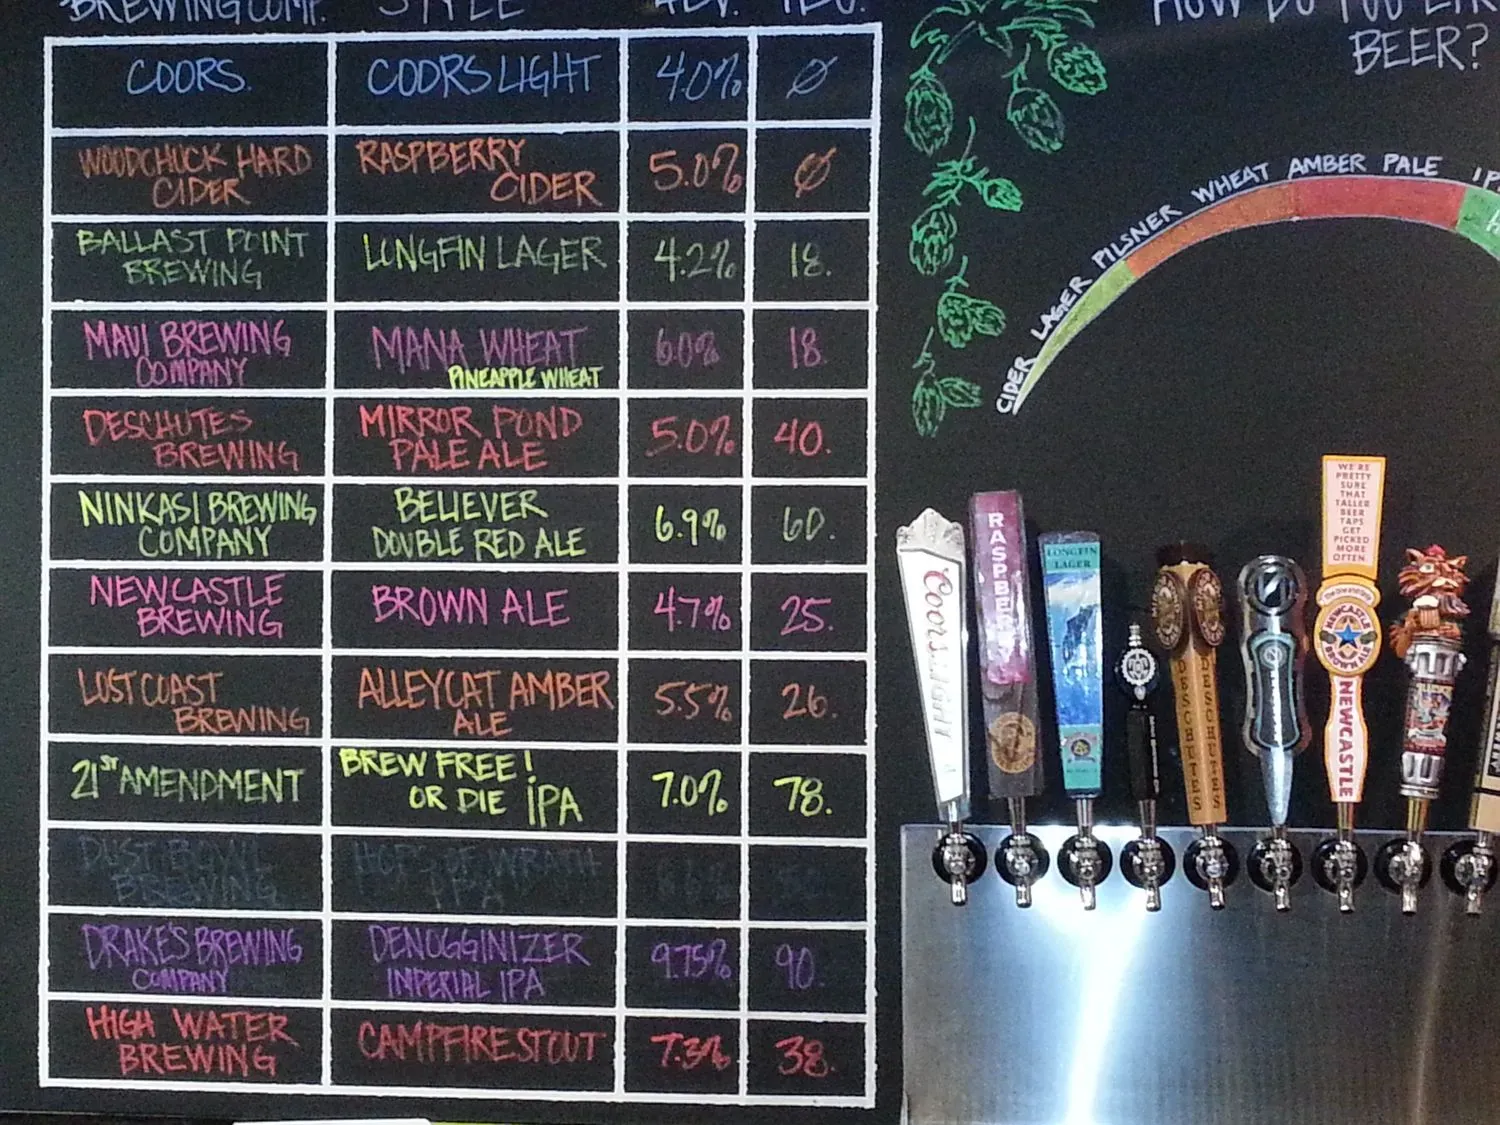 BREWING COMP. STYLE
COORS. COORS LIGHT 4.0% Ø
WOODCHUCK HARD CIDER RASPBERRY CIDER 5.0% Ø
BALLAST POINT BREWING LONGFIN LAGER 4.2% 18.
MAUI BREWING COMPANY MANA WHEAT PINEAPPLE WHEAT 6.0% 18.
DESCHUTES BREWING MIRROR POND PALE ALE 5.0% 40.
NINKASI BREWING COMPANY BELIEVER DOUBLE RED ALE 6.9% 60.
NEWCASTLE BREWING BROWN ALE 4.7% 25.
LOST COAST BREWING ALLEYCAT AMBER ALE 5.5% 26.
21ST AMENDMENT BREW FREE! OR DIE IPA 7.0% 78.
DUST BOWL BREWING HOPS OF WRATH IPA
DRAKE'S BREWING COMPANY DENOGGINIZER IMPERIAL IPA 9.75% 90.
HIGH WATER BREWING CAMPFIRE STOUT 7.3% 38.
HOW DO YOU
BEER?
CIDER LAGER PILSNER WHEAT AMBER PALE
Coors Light
RASPBERRY
LONGFIN
LAGER
DESCHUTES
DESCHUTES
WE'RE
PRETTY
SURE
THAT
TALLER
BEER
TAPS
GET
PICKED
MORE
OFTEN.
NEWCASTLE
BROWN ALE
NEWCASTLE